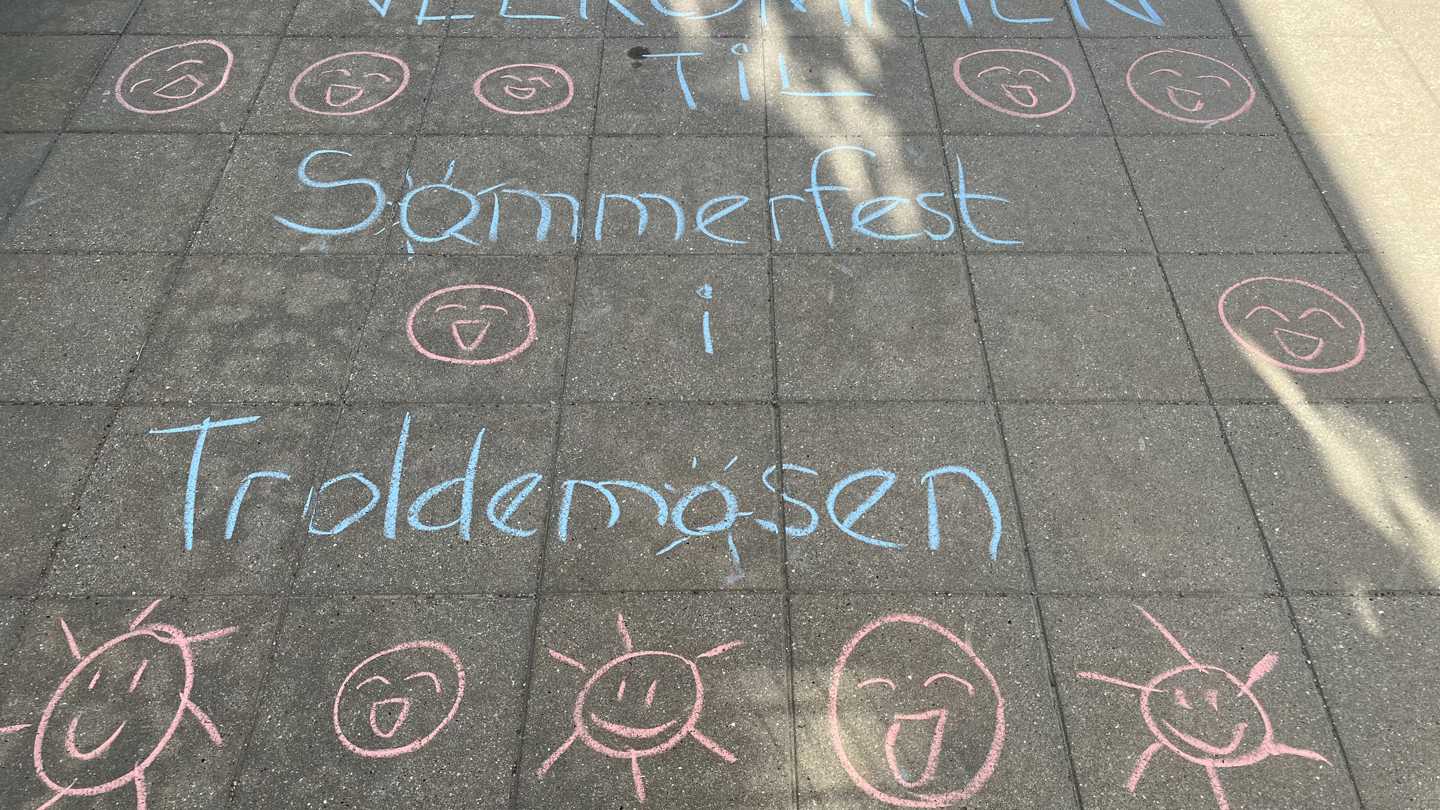 VELKOMMEN
TiL
Sommerfest
i
Troldemosen